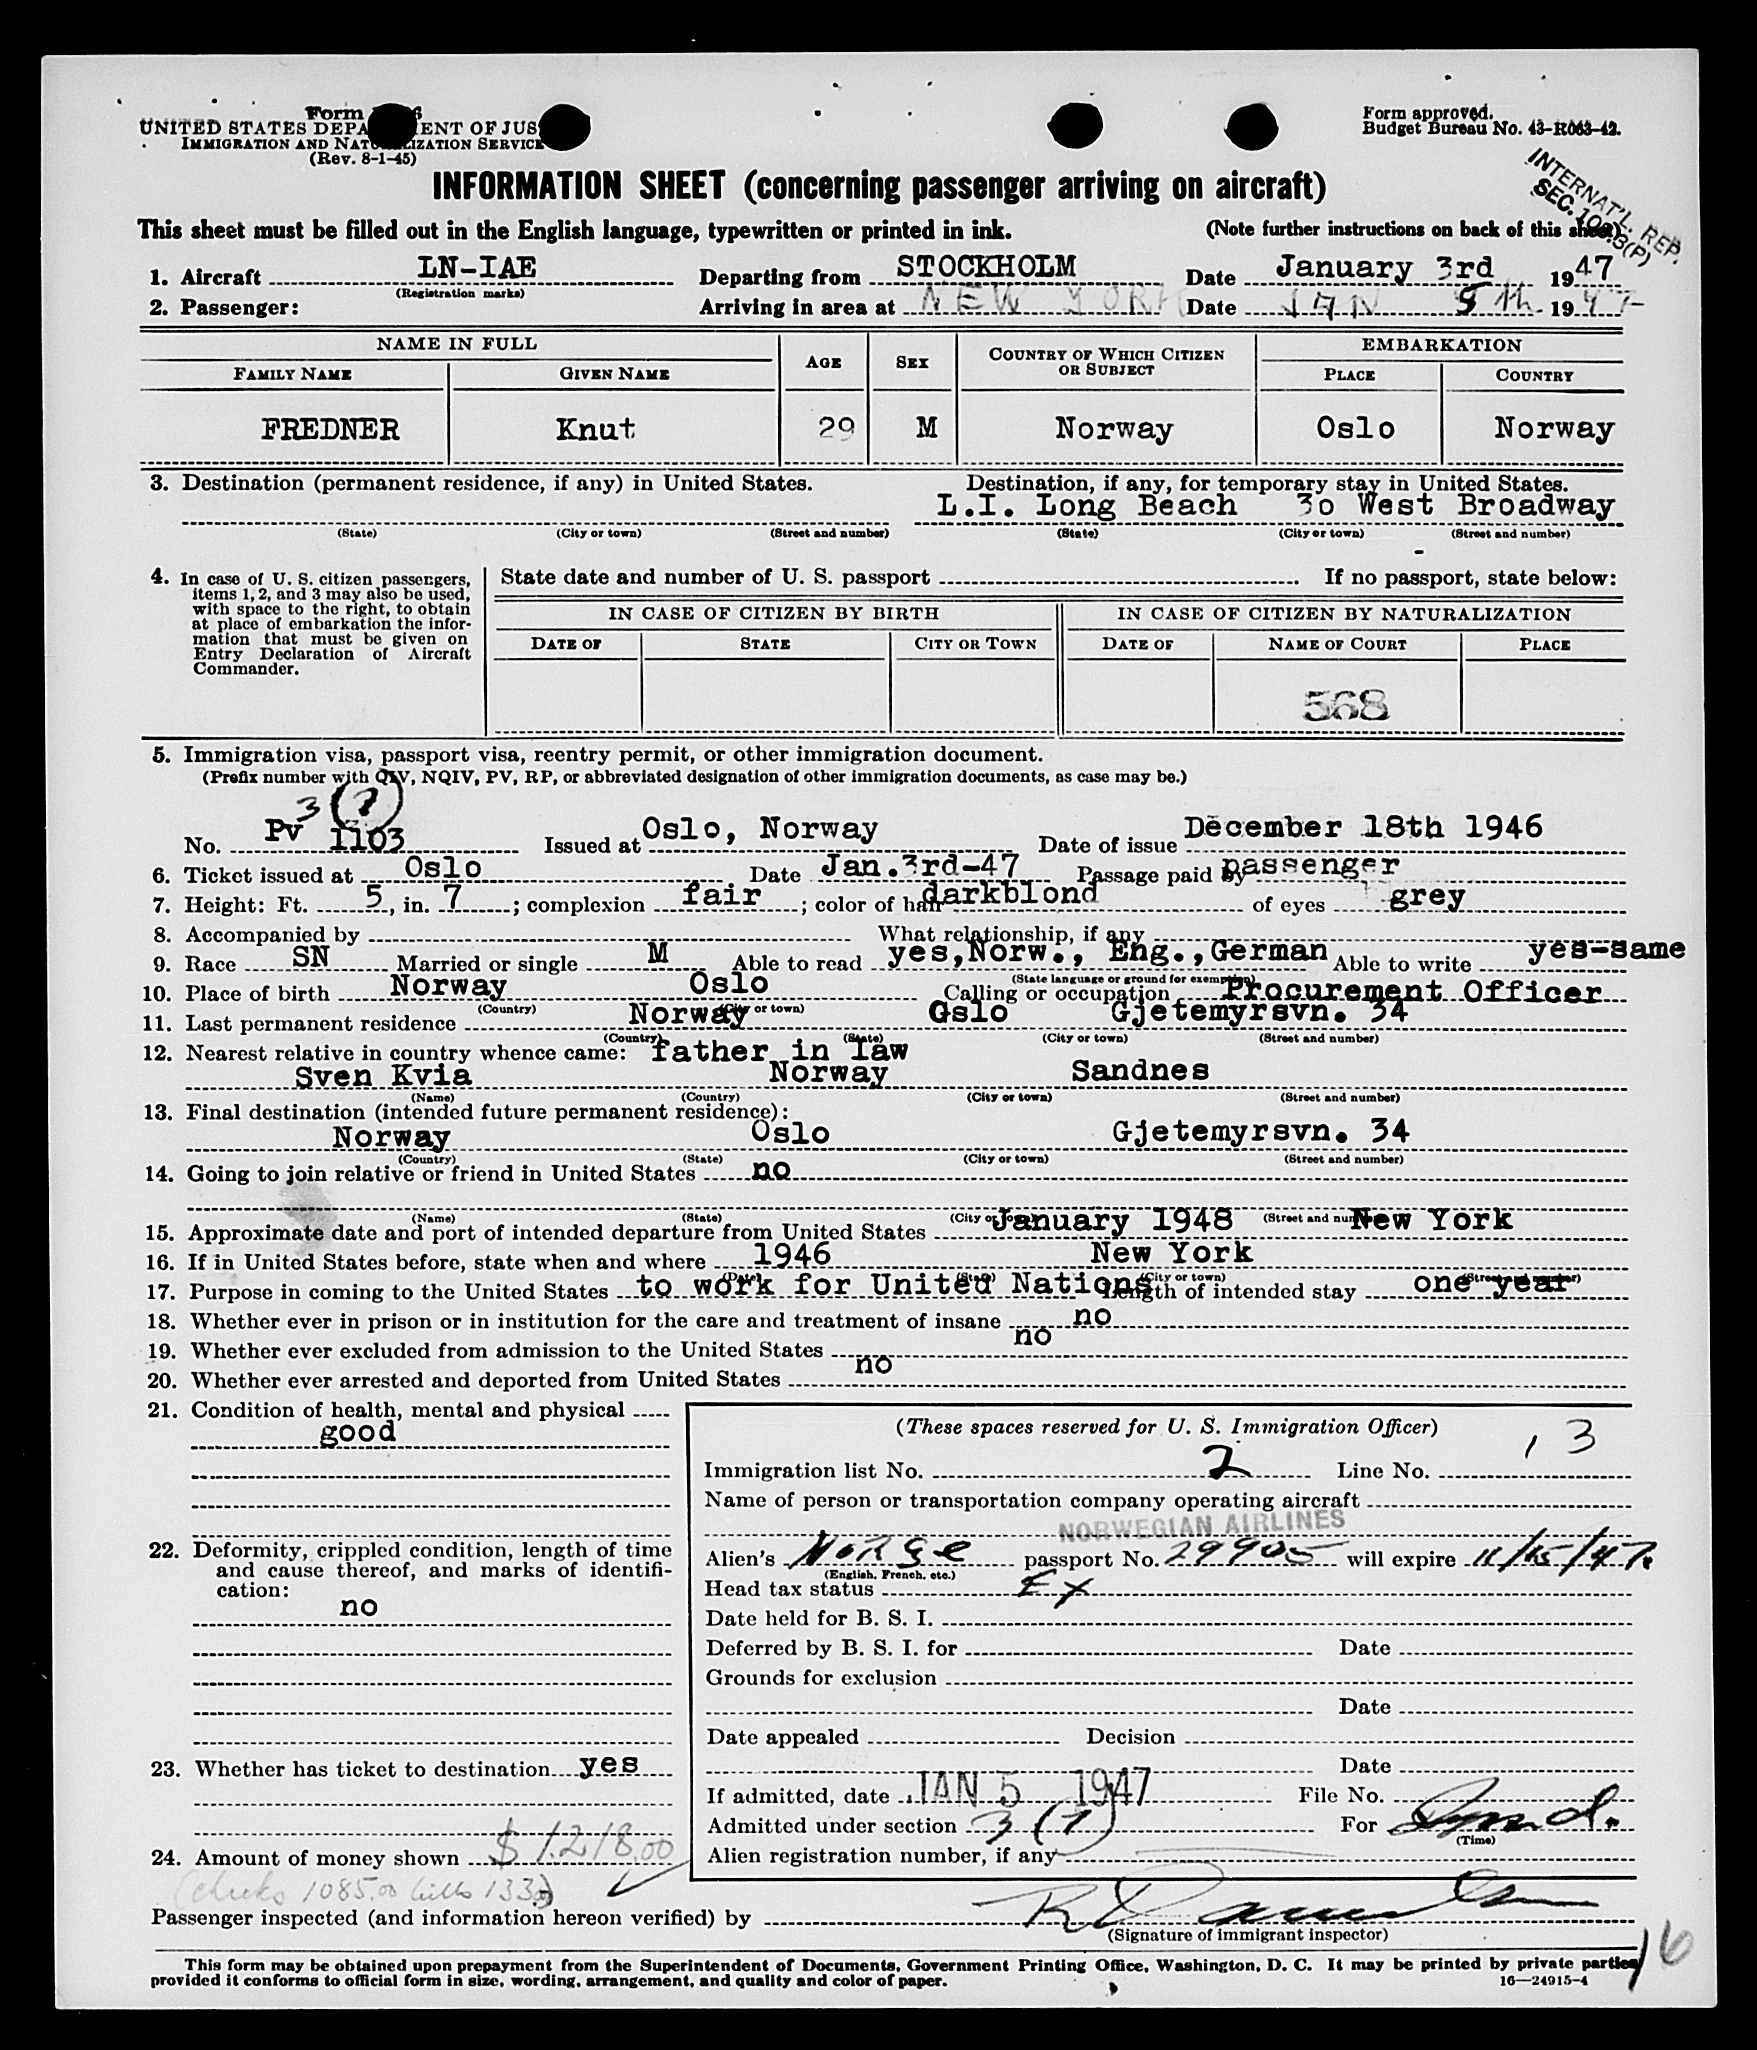 Form
UNITED STATES DEPA ENT OF JUS
IMMIGRATION AND NATU LIZATION SERVICE
(Rev. 8-1-45)
Form approved.
Budget Bureau No. 43-R063-42.
INTERNAT'L. REP.
INFORMATION SHEET (concerning passenger arriving on aircraft)
This sheet must be filled out in the English language, typewritten or printed in ink. (Note further instructions on back of this sheet)
1. Aircraft LN-IAE Departing from STOCKHOLM Date January 3rd 1947
(Registration marks)
2. Passenger: Arriving in area at NEW YORK Date JAN 5th 1947
NAME IN FULL AGE SEX COUNTRY OF WHICH CITIZEN OR SUBJECT EMBARKATION
FAMILY NAME GIVEN NAME PLACE COUNTRY
FREDNER Knut 29 M Norway Oslo Norway
3. Destination (permanent residence, if any) in United States. Destination, if any, for temporary stay in United States.
L.I. Long Beach 30 West Broadway
(State) (City or town) (Street and number) (State) (City or town) (Street and number)
4. In case of U. S. citizen passengers, items 1, 2, and 3 may also be used, with space to the right, to obtain at place of embarkation the information that must be given on Entry Declaration of Aircraft Commander.
State date and number of U. S. passport If no passport, state below:
IN CASE OF CITIZEN BY BIRTH IN CASE OF CITIZEN BY NATURALIZATION
DATE OF STATE CITY OR TOWN DATE OF NAME OF COURT PLACE
568
5. Immigration visa, passport visa, reentry permit, or other immigration document.
(Prefix number with QIV, NQIV, PV, RP, or abbreviated designation of other immigration documents, as case may be.)
3 (7)
No. Pv 1103 Issued at Oslo, Norway Date of issue December 18th 1946
6. Ticket issued at Oslo Date Jan.3rd-47 Passage paid by passenger
7. Height: Ft. 5, in. 7; complexion fair; color of hair darkblond of eyes grey
8. Accompanied by What relationship, if any
9. Race SN Married or single M Able to read yes,Norw., Eng.,German Able to write yes-same
(State language or ground for exemption)
10. Place of birth Norway Oslo Calling or occupation Procurement Officer
(Country) (City or town)
11. Last permanent residence Norway Oslo Gjetemyrsvn. 34
(Country) (State) (City or town) (Street and number)
12. Nearest relative in country whence came: father in law
Sven Kvia Norway Sandnes
(Name) (Country) (City or town) (Street and number)
13. Final destination (intended future permanent residence):
Norway Oslo Gjetemyrsvn. 34
(Country) (State) (City or town) (Street and number)
14. Going to join relative or friend in United States no
(Name) (State) (City or town) (Street and number)
15. Approximate date and port of intended departure from United States January 1948 New York
16. If in United States before, state when and where 1946 New York
(Date) (State) (City or town) (Street and number)
17. Purpose in coming to the United States to work for United Nations Length of intended stay one year
18. Whether ever in prison or in institution for the care and treatment of insane no
19. Whether ever excluded from admission to the United States no
20. Whether ever arrested and deported from United States no
21. Condition of health, mental and physical
good
22. Deformity, crippled condition, length of time and cause thereof, and marks of identification:
no
23. Whether has ticket to destination yes
24. Amount of money shown $ 1218.00
1085.00 133
(These spaces reserved for U. S. Immigration Officer)
Immigration list No. 2 Line No. 13
Name of person or transportation company operating aircraft
NORWEGIAN AIRLINES
Alien's Norge passport No. 29905 will expire 11/15/47
(English, French, etc.)
Head tax status EX
Date held for B. S. I.
Deferred by B. S. I. for Date
Grounds for exclusion
Date
Date appealed Decision
Date
If admitted, date JAN 5 1947 File No.
Admitted under section 3 (7) For
(Time)
Alien registration number, if any
Passenger inspected (and information hereon verified) by
(Signature of immigrant inspector)
16
This form may be obtained upon prepayment from the Superintendent of Documents, Government Printing Office, Washington, D. C. It may be printed by private parties
provided it conforms to official form in size, wording, arrangement, and quality and color of paper. 16—24915-4